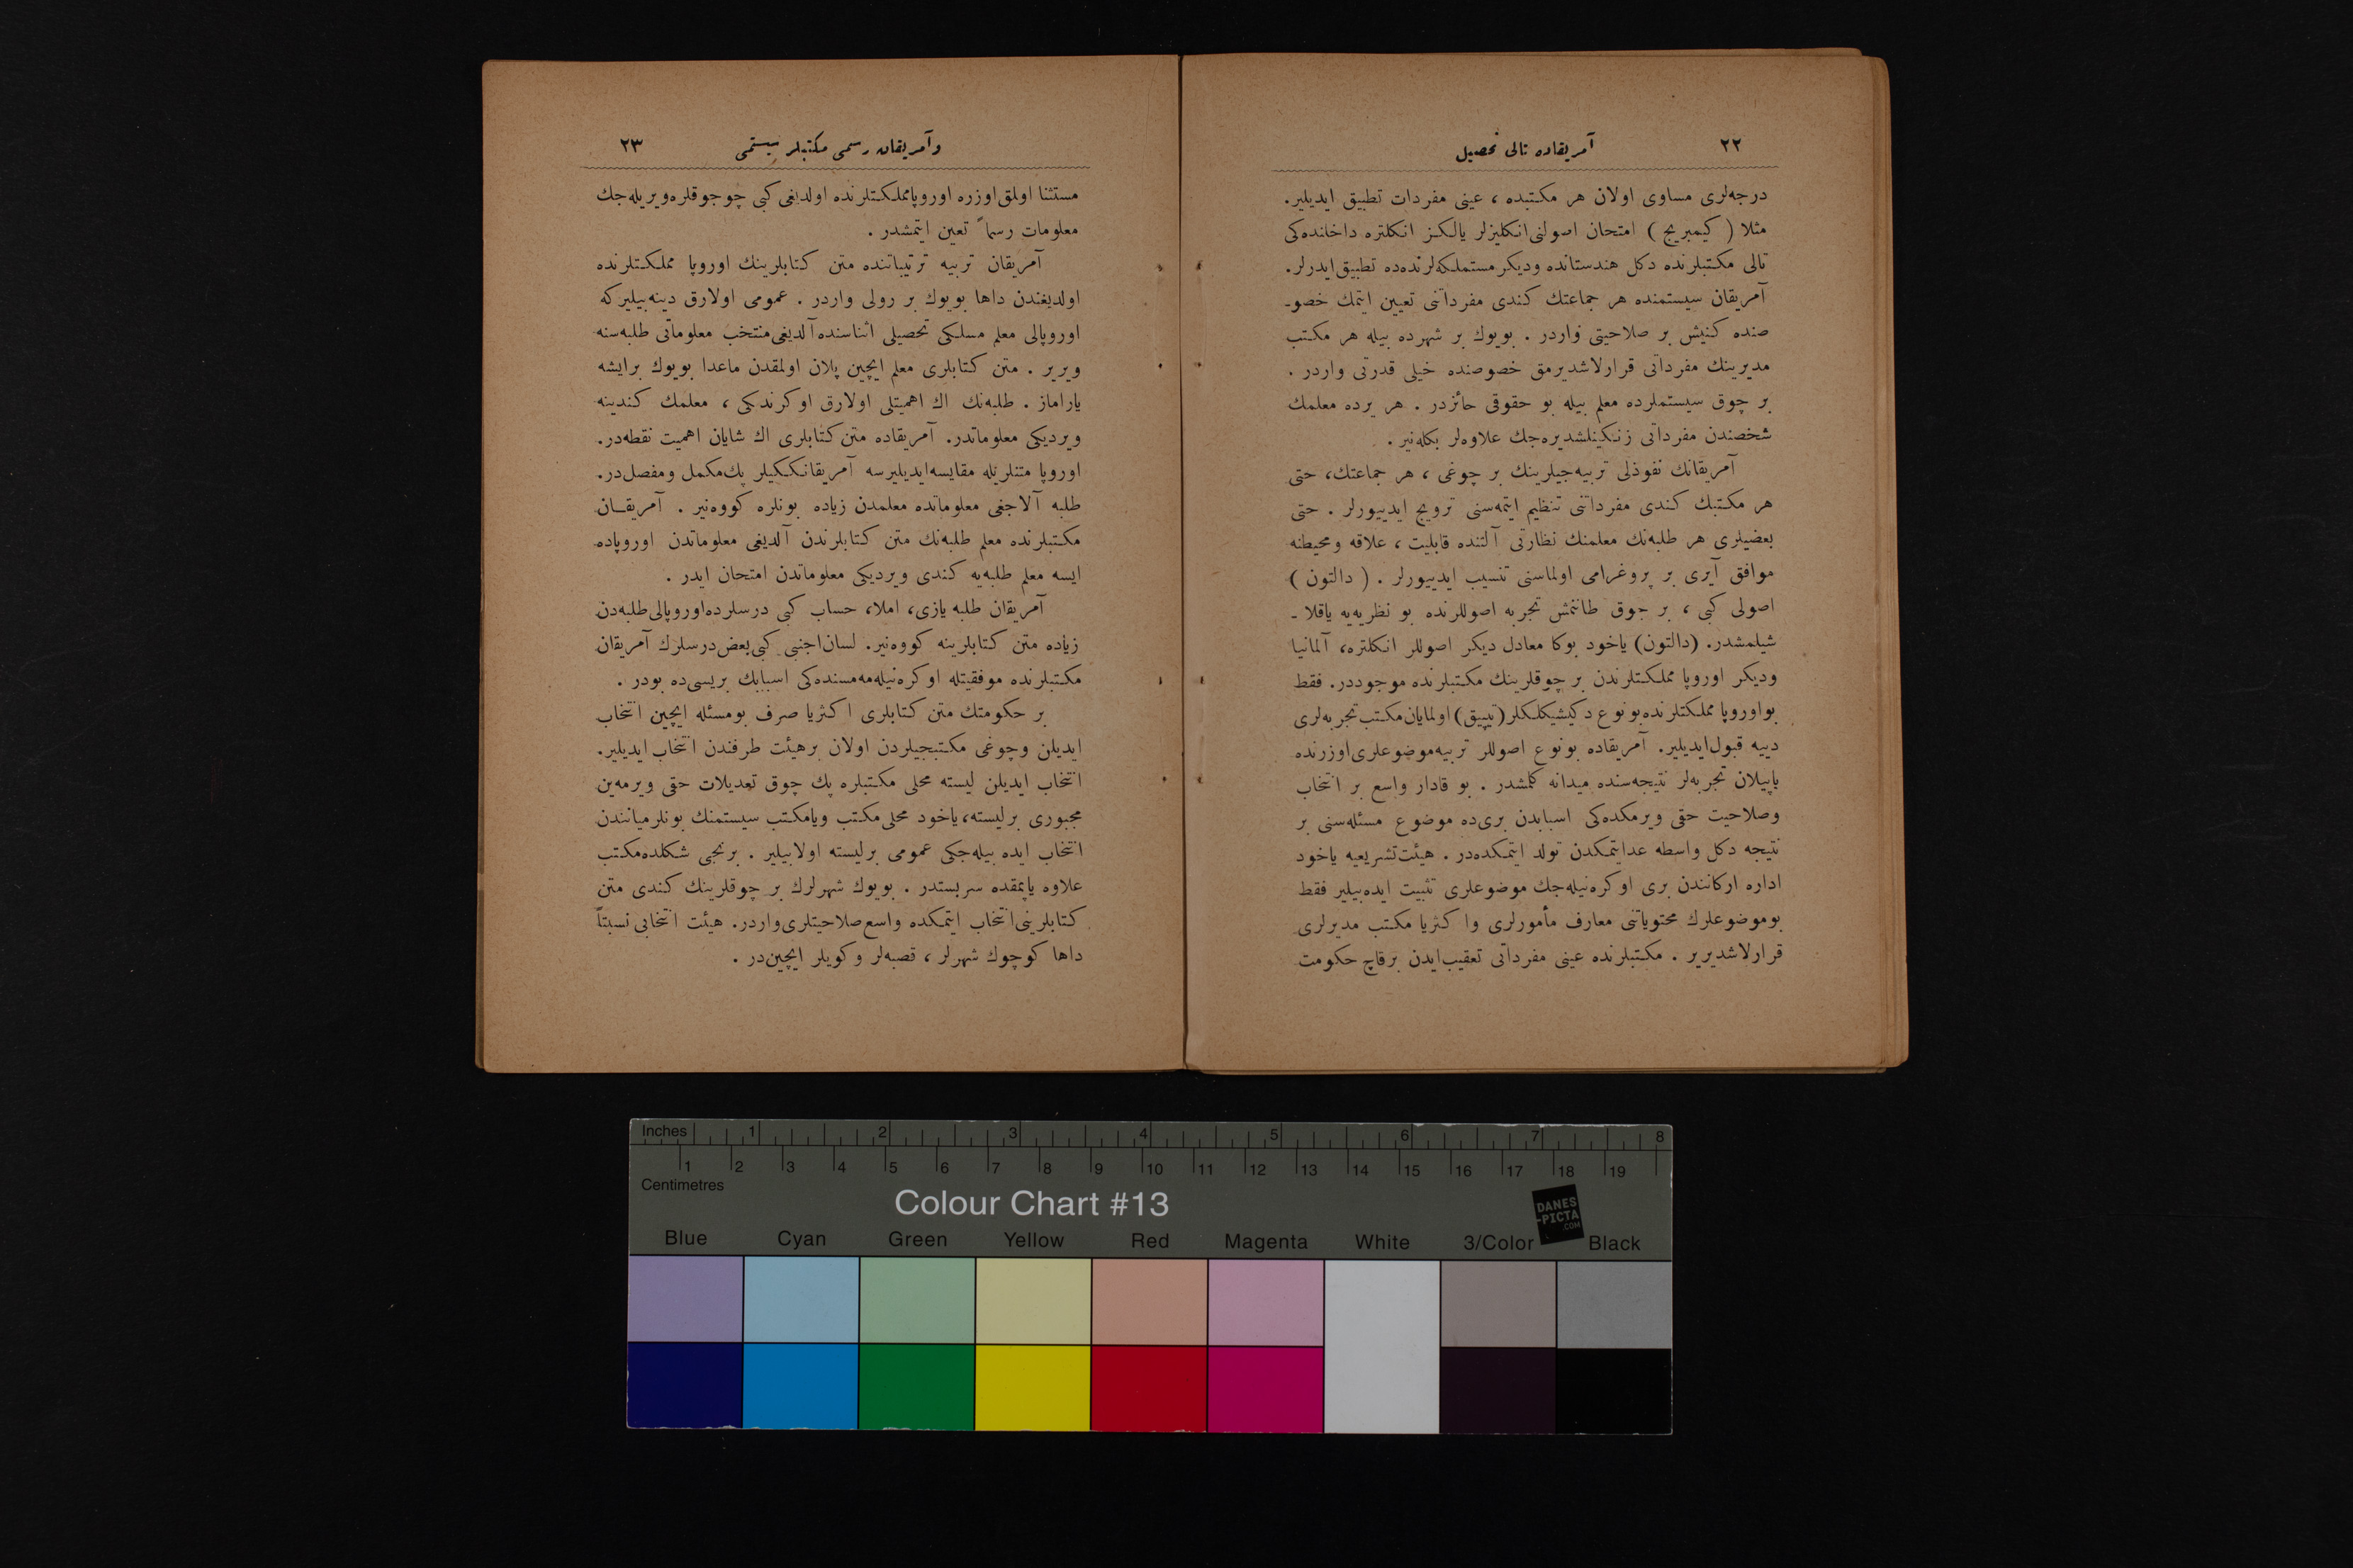 ٢٢
آمریقاده تالی تحصیل
درجه‌لری مساوی اولان هر مکتبده ، عینی مفردات تطبیق ایدیلیر.
مثلا ( کیمبریج ) امتحان اصولنی انکلیزلر یالکز انکلتره داخلنده‌کی
تالی مکتبلرنده دکل هندستانده ودیکر مستملکه‌لرنده‌ده تطبیق ایدرلر.
آمریقان سیستمنده هر جماعتك کندی مفرداتنی تعیین ایتمك خصو-
صنده کنیش بر صلاحیتی واردر . بویوك بر شهرده بیله هر مکتب
مدیرینك مفرداتی قرارلاشدیرمق خصوصنده خیلی قدرتی واردر .
بر چوق سیستملرده معلم بیله بو حقوقی حائزدر . هر یرده معلمك
شخصندن مفرداتی زنکینلشدیره‌جك علاوه‌لر بکله‌نیر .
آمریقانك نفوذلی تربیه‌جیلرینك بر چوغی ، هر جماعتك، حتی
هر مکتبك کندی مفرداتنی تنظیم ایتمه‌سنی ترویج ایدییورلر . حتی
بعضیلری هر طلبه‌نك معلمنك نظارتی آلتنده قابلیت ، علاقه ومحیطنه
موافق آیری بر پروغرامی اولماسنی تنسیب ایدییورلر . ( دالتون )
اصولی کبی ، بر جوق طانتمش تجربه اصوللرنده بو نظریه‌یه یاقلا -
شیلمشدر. (دالتون) یاخود بوکا معادل دیکر اصوللر انکلتره، آلمانیا
ودیکر اوروپا مملکتلرندن بر چوقلرینك مکتبلرنده موجوددر. فقط
بواوروپا مملکتلرنده بونوع دکیشیکلکلر (تیپیق) اولمایان مکتب تجربه‌لری
دییه قبول ایدیلیر. آمریقاده بونوع اصوللر تربیه موضوعلری اوزرنده
یاپیلان تجربه‌لر نتیجه‌سنده میدانه کلمشدر . بو قادار واسع بر انتخاب
وصلاحیت حقی ویرمکده‌کی اسبابدن بری‌ده موضوع مسئله‌سنی بر
نتیجه دکل واسطه عدایتمکدن تولد ایتمکده‌در . هیئت تشریعیه یاخود
اداره ارکانندن بری اوکره‌نیله‌جك موضوعلری تثبیت ایده‌بیلیر فقط
بوموضوعلرك محتویاتنی معارف مأمورلری وا کثریا مکتب مدیرلری
قرارلاشدیریر . مکتبلرنده عینی مفرداتی تعقیب ایدن برقاچ حکومت
وآمریقان رسمی مکتبلر سیستمی
٢٣
مستثنا اولمق اوزره اوروپا مملکتلرنده اولدیغی کبی چوجوقلره ویریله‌جك
معلومات رسماً تعین ایتمشدر .
آمریقان تربیه ترتیباتنده متن کتابلرینك اوروپا مملکتلرنده
اولدیغندن داها بویوك بر رولی واردر . عمومی اولارق دینه‌بیلیرکه
اوروپالی معلم مسلکی تحصیلی اثناسنده آلدیغی منتخب معلوماتی طلبه‌سنه
ویریر . متن کتابلری معلم ایچین پلان اولمقدن ماعدا بویوك برایشه
یاراماز . طلبه‌نك اك اهمیتلی اولارق اوکرندیکی ، معلمك کندینه
ویردیکی معلوماتدر. آمریقاده متن کتابلری اك شایان اهمیت نقطه‌در.
اوروپا متنلریله مقایسه ایدیلیرسه آمریقانککیلر پك مکمل ومفصل‌در.
طلبه آلاجغی معلوماتده معلمدن زیاده بونلره کووه‌نیر . آمریقـان
مکتبلرنده معلم طلبه‌نك متن کتابلرندن آلدیغی معلوماتدن اوروپاده
ایسه معلم طلبه‌یه کندی ویردیکی معلوماتدن امتحان ایدر .
آمریقان طلبه یازی، املا، حساب کبی درسلرده اوروپالی طلبه‌دن
زیاده متن کتابلرینه کووه‌نیر. لسان اجنبی کبی بعض درسلرك آمریقان
مکتبلرنده موفقیتله اوکره‌نیله‌مه‌مسنده‌کی اسبابك بریسی‌ده بودر .
بر حکومتك متن کتابلری اکثریا صرف بومسئله ایچین انتخاب
ایدیلن وچوغی مکتبجیلردن اولان برهیئت طرفندن انتخاب ایدیلیر.
انتخاب ایدیلن لیسته محلی مکتبلره پك چوق تعدیلات حقی ویرمه‌ین
مجبوری برلیسته، یاخود محلی مکتب ویا مکتب سیستمنك بونلرمیانندن
انتخاب ایده بیله‌جکی عمومی برلیسته اولابیلیر . برنجی شکلده مکتب
علاوه یاپمقده سربستدر . بویوك شهرلرك بر چوقلرینك کندی متن
کتابلرینی انتخاب ایتمکده واسع صلاحیتلری واردر. هیئت انتخابی نسبتاً
داها کوچوك شهرلر ، قصبه‌لر وکویلر ایچین‌در .
Inches 1 2 3 4 5 6 7 8
1 2 3 4 5 6 7 8 9 10 11 12 13 14 15 16 17 18 19
Centimetres
Colour Chart #13
DANES
-PICTA
.COM
Blue Cyan Green Yellow Red Magenta White 3/Color Black